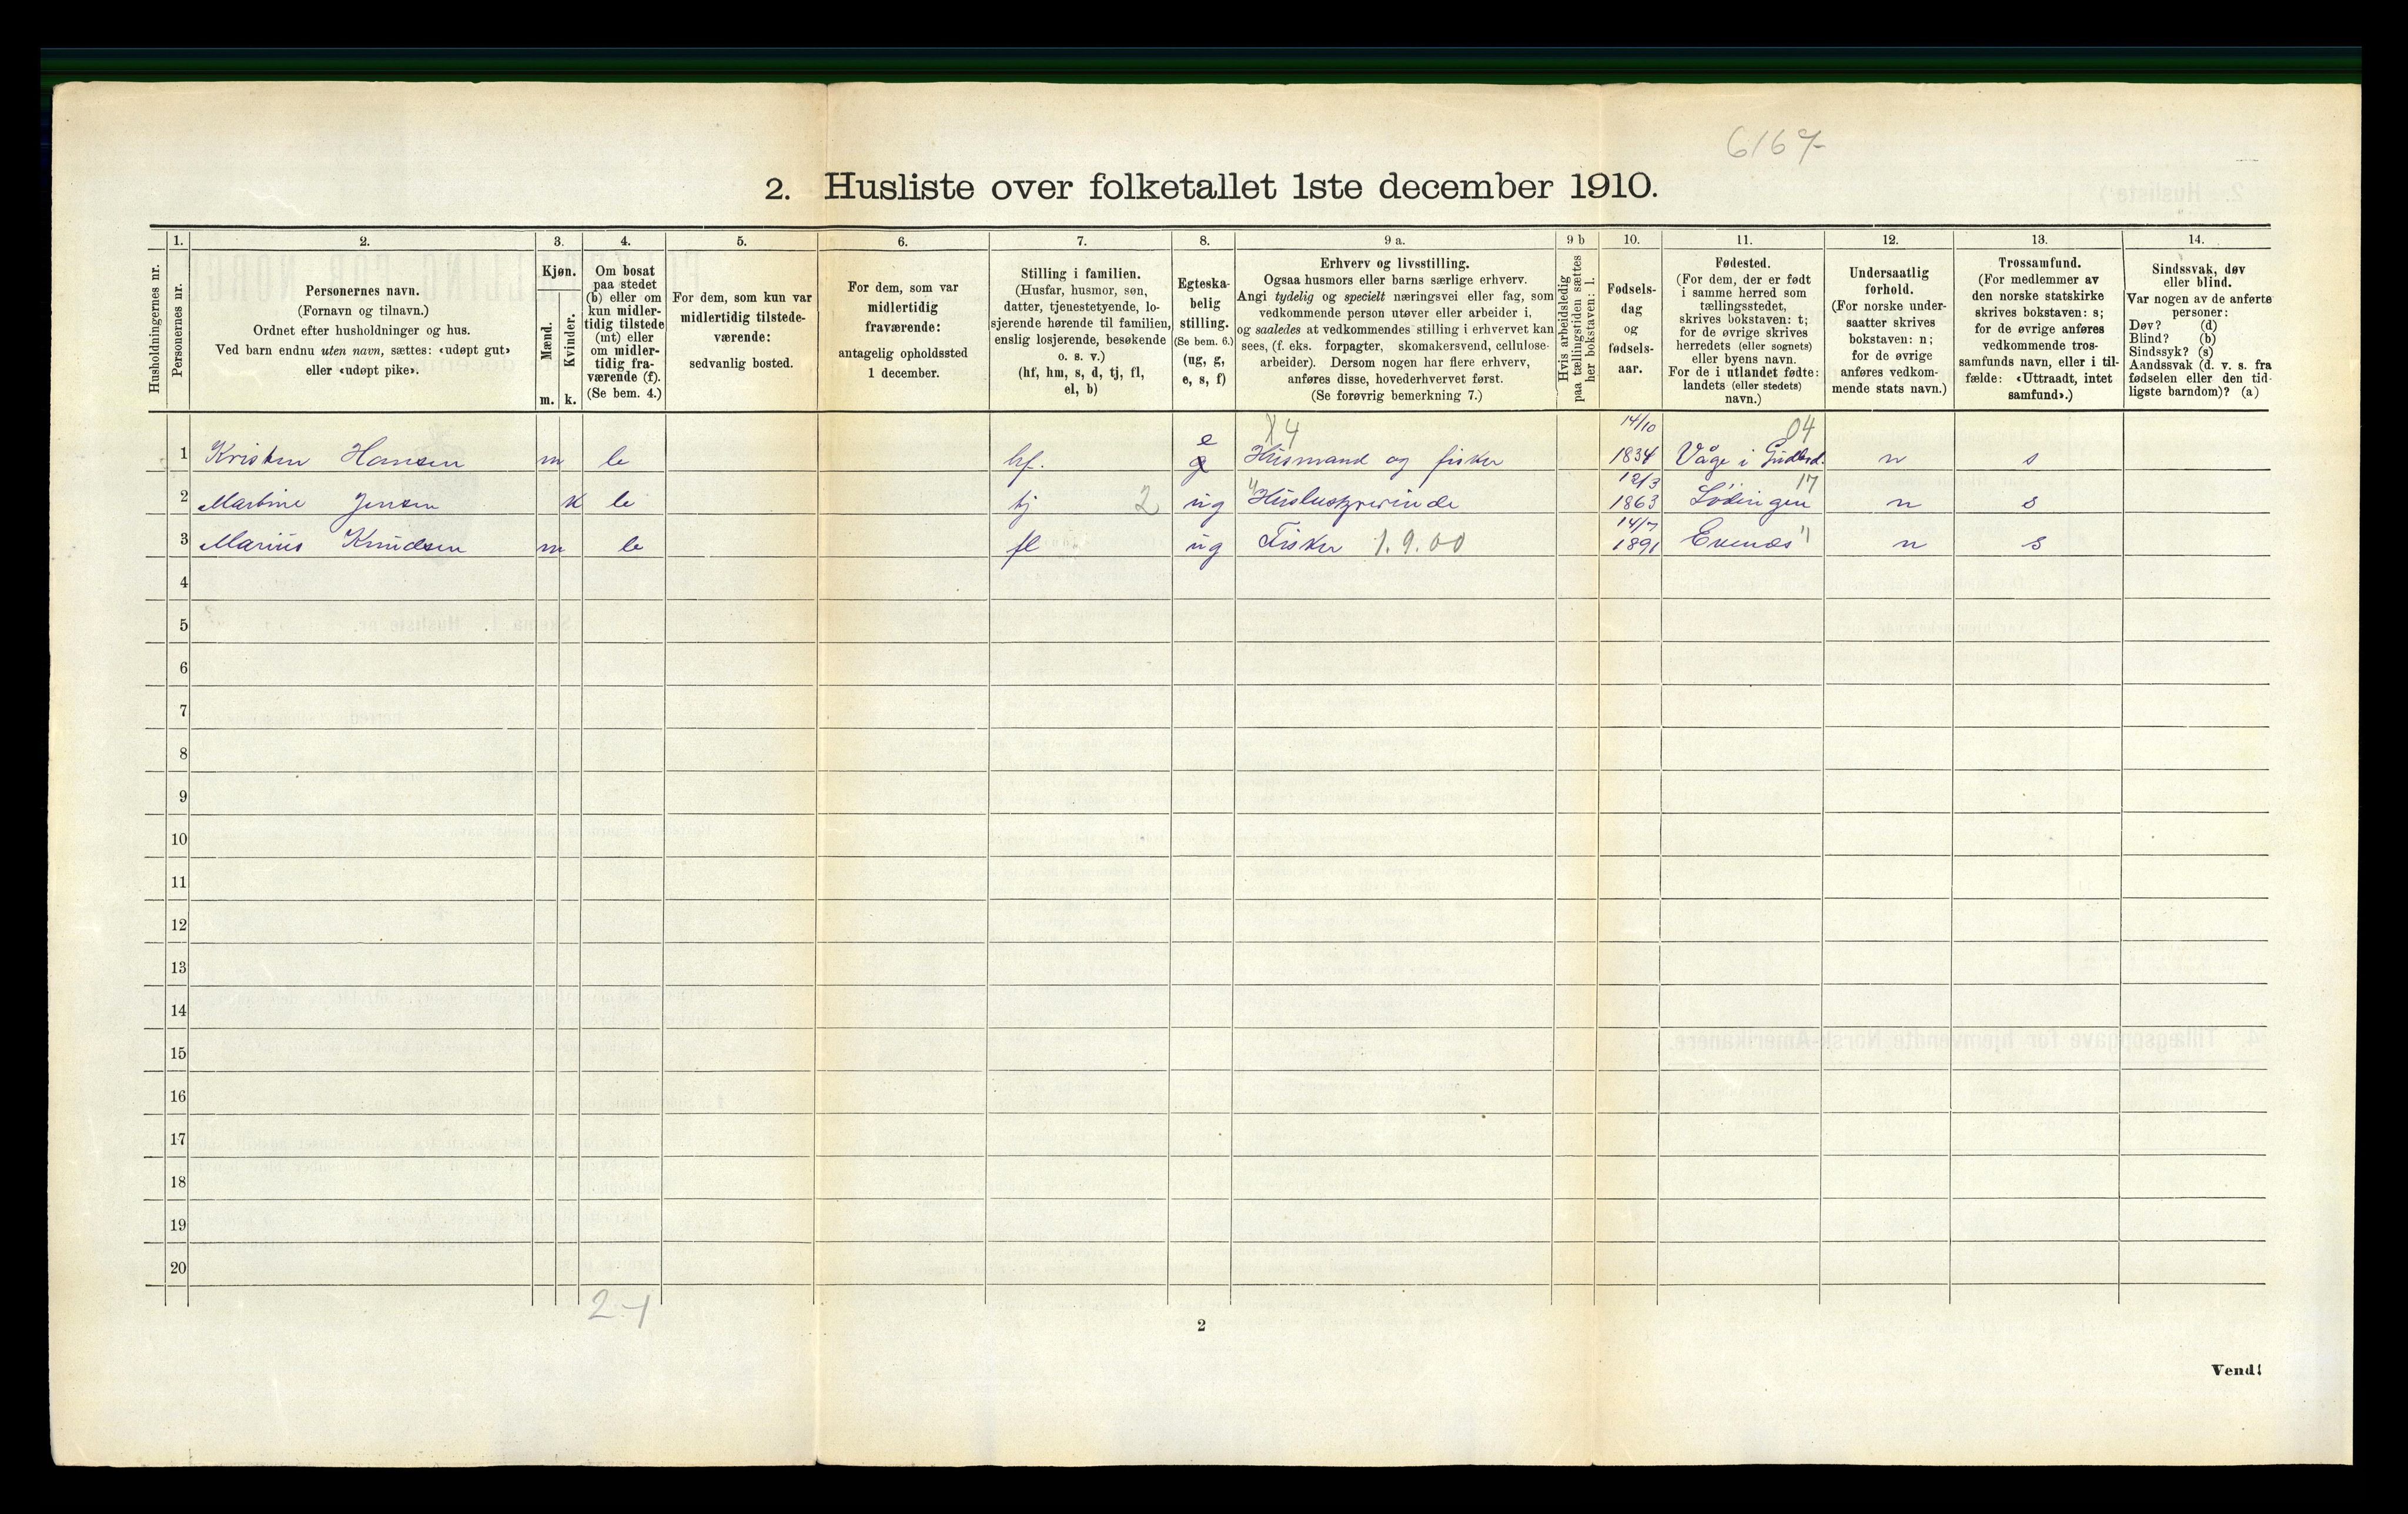 6167-
2. Husliste over folketallet 1ste december 1910.
Husholdningernes nr.
1.
Personernes nr.
2.
Personernes navn.
(Fornavn og tilnavn.)
Ordnet efter husholdninger og hus.
Ved barn endnu uten navn, sættes: «udøpt gut»
eller «udøpt pike».
3.
Kjøn.
Mænd.
Kvinder.
m. k.
4.
Om bosat
paa stedet
(b) eller om
kun midler-
tidig tilstede
(mt) eller
om midler-
tidig fra-
værende (f).
(Se bem. 4.)
5.
For dem, som kun var
midlertidig tilstede-
værende:
sedvanlig bosted.
6.
For dem, som var
midlertidig
fraværende:
antagelig opholdssted
1 december.
7.
Stilling i familien.
(Husfar, husmor, søn,
datter, tjenestetyende, lo-
sjerende hørende til familien,
enslig losjerende, besøkende
o. s. v.)
(hf, hm, s, d, tj, fl,
el, b)
8.
Egteska-
belig
stilling.
(Se bem. 6.)
(ug, g,
e, s, f)
9 a.
Erhverv og livsstilling.
Ogsaa husmors eller barns særlige erhverv.
Angi tydelig og specielt næringsvei eller fag, som
vedkommende person utøver eller arbeider i,
og saaledes at vedkommendes stilling i erhvervet kan
sees, (f. eks. forpagter, skomakersvend, cellulose-
arbeider). Dersom nogen har flere erhverv,
anføres disse, hovederhvervet først.
(Se forøvrig bemerkning 7.)
9 b
Hvis arbeidsledig
paa tællingstiden sættes
her bokstaven: l.
10.
Fødsels-
dag
og
fødsels-
aar.
11.
Fødested.
(For dem, der er født
i samme herred som
tællingsstedet,
skrives bokstaven: t;
for de øvrige skrives
herredets (eller sognets)
eller byens navn.
For de i utlandet fødte:
landets (eller stedets)
navn.)
12.
Undersaatlig
forhold.
(For norske under-
saatter skrives
bokstaven: n;
for de øvrige
anføres vedkom-
mende stats navn.)
13.
Trossamfund.
(For medlemmer av
den norske statskirke
skrives bokstaven: s;
for de øvrige anføres
vedkommende tros-
samfunds navn, eller i til-
fælde: «Uttraadt, intet
samfund».)
14.
Sindssvak, døv
eller blind.
Var nogen av de anførte
personer:
Døv? (d)
Blind? (b)
Sindssyk? (s)
Aandssvak (d. v. s. fra
fødselen eller den tid-
ligste barndom)? (a)
e X4 14/10 04
1 Kristen Hansen m b hf. g Husmand og fisker 1834 Våge i Gudbrd. n s
12/3 17
2 Martine Jensen k b tj 2 ug Husbestyrerinde 1863 Lødingen n s
14/7
3 Marius Knudsen m b fl ug Fisker 1.9.00 1891 Evenæs " n s
4
5
6
7
8
9
10
11
12
13
14
15
16
17
18
19
20
2-1
2
Vend!